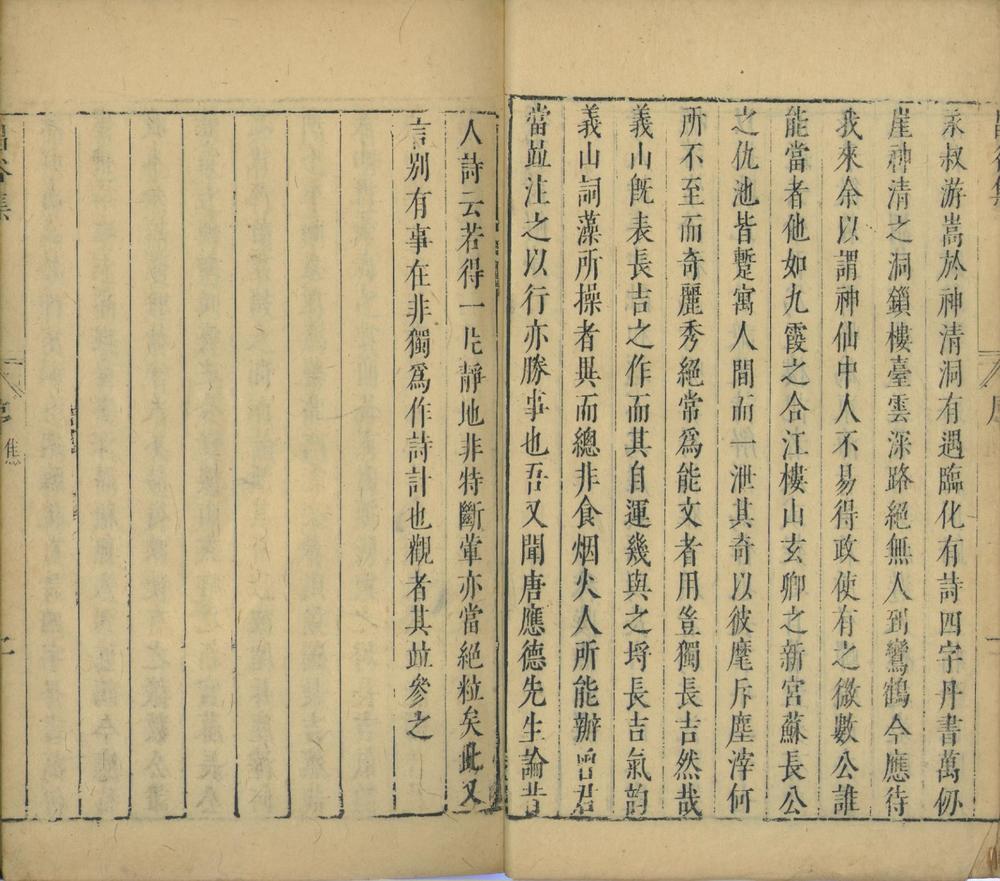 永叔游嵩於神清洞有遇臨化有詩四字丹書萬仞
崖神清之洞鎖樓臺雲深路絕無人到鸞鶴今應待
我來余以謂神仙中人不易得政使有之微數公誰
能當者他如九霞之合江樓山玄卿之新宮蘇長公
之仇池皆蹔寓人間而一泄其奇以彼麾斥塵滓何
所不至而奇麗秀絕常爲能文者用豈獨長吉然哉
義山旣表長吉之作而其自運幾與之埒長吉氣韵
義山詞藻所操者異而總非食烟火人所能辦曾君
當竝注之以行亦勝事也吾又聞唐應德先生論昔
人詩云若得一片靜地非特斷葷亦當絕粒矣此又
言別有事在非獨爲作詩計也觀者其竝參之
昌谷集
序